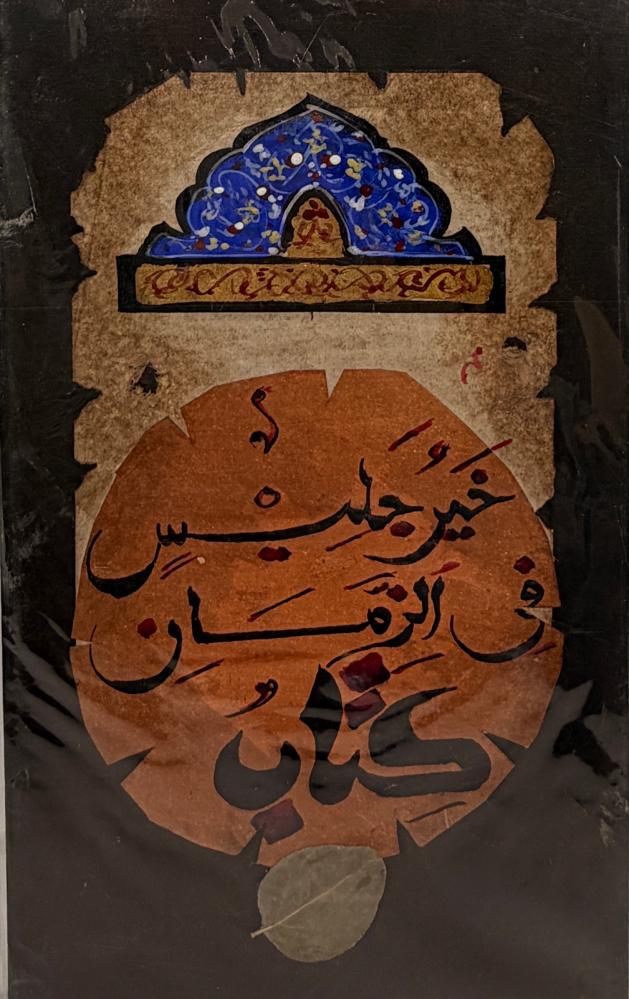 خَيْرُ جَلِيسٍ
فِي الزَّمَانِ
كِتَابٌ